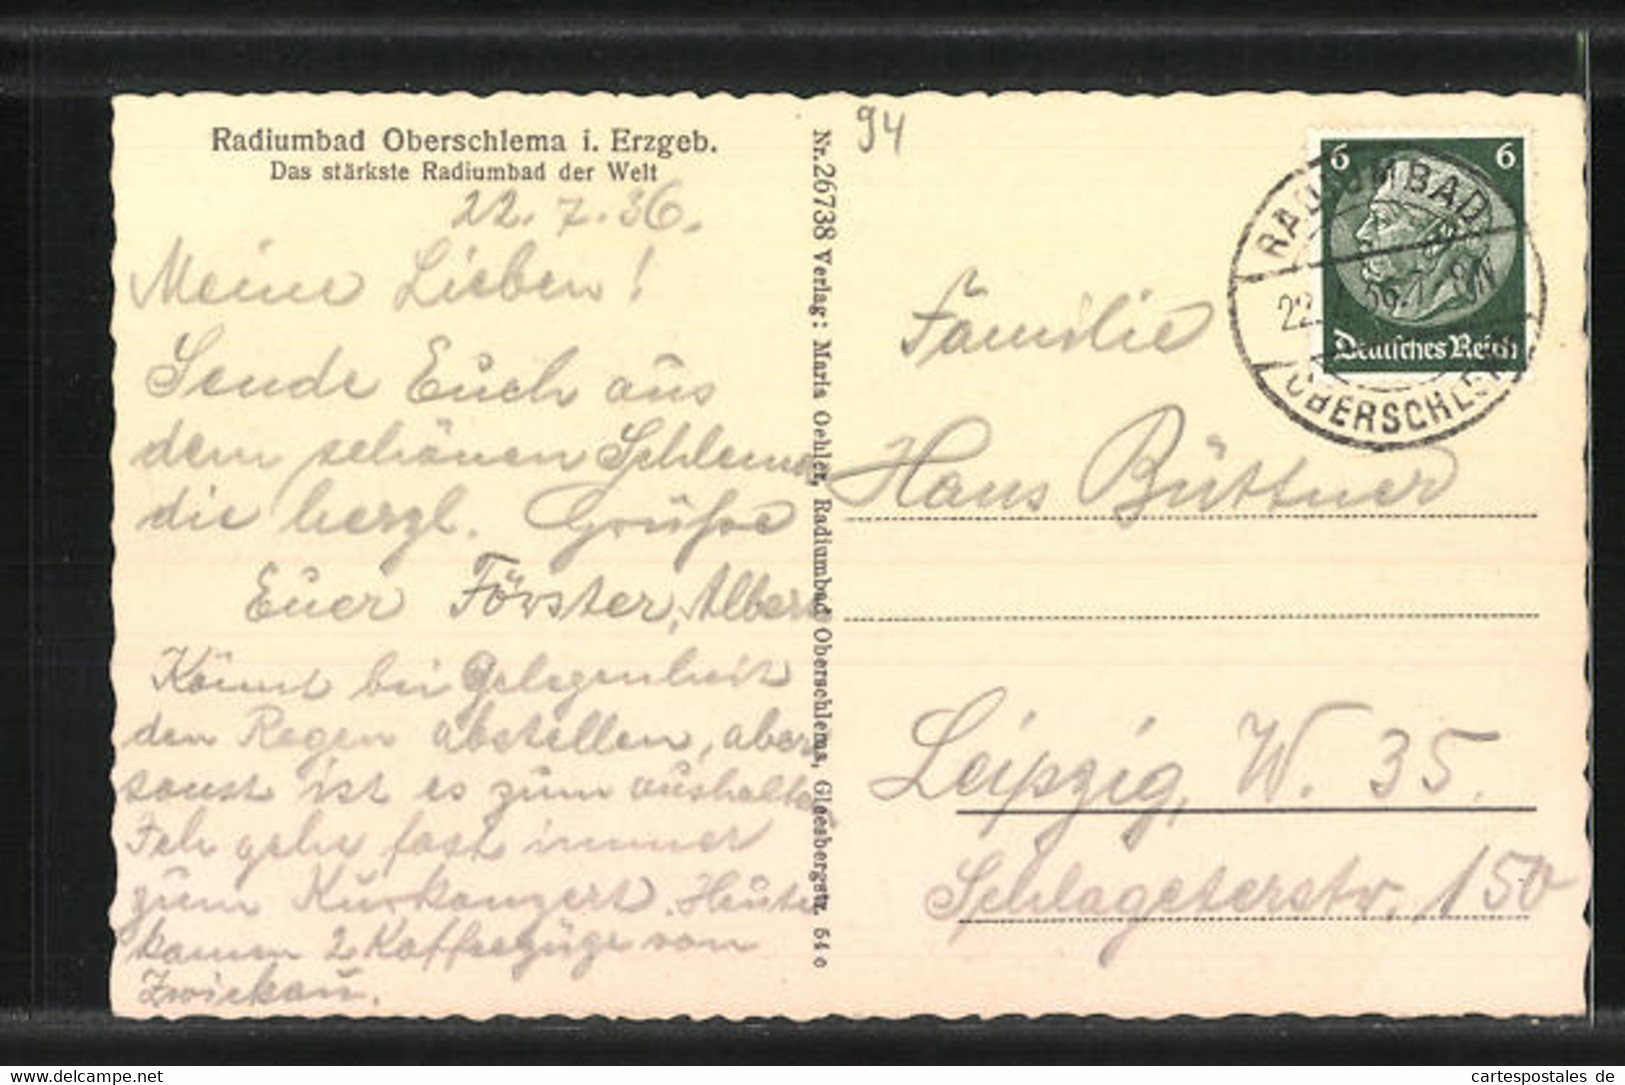 Radiumbad Oberschlema i. Erzgeb.
Das stärkste Radiumbad der Welt
22. 7. 36.
Meine Lieben!
Sende Euch aus
dem schönen Schlema
die herzl. Grüße
Euer Förster, Albert
Könnt bei Gelegenheit
den Regen abstellen, aber
sonst ist es zum aushalten
Ich gehe fast immer
zum Kurkonzert. Heute
kamen 2 Kaffeezüge von
Zwickau.
Nr. 26738 Verlag: Maria Oehler, Radiumbad Oberschlema, Gleesbergstr. 54 c
94
6 6
Deutsches Reich
RADIUMBAD
22. 36.
OBERSCHLEMA
Familie
Hans Büttner
Leipzig, W. 35.
Schlageterstr. 150
delcampe.net
cartespostales de